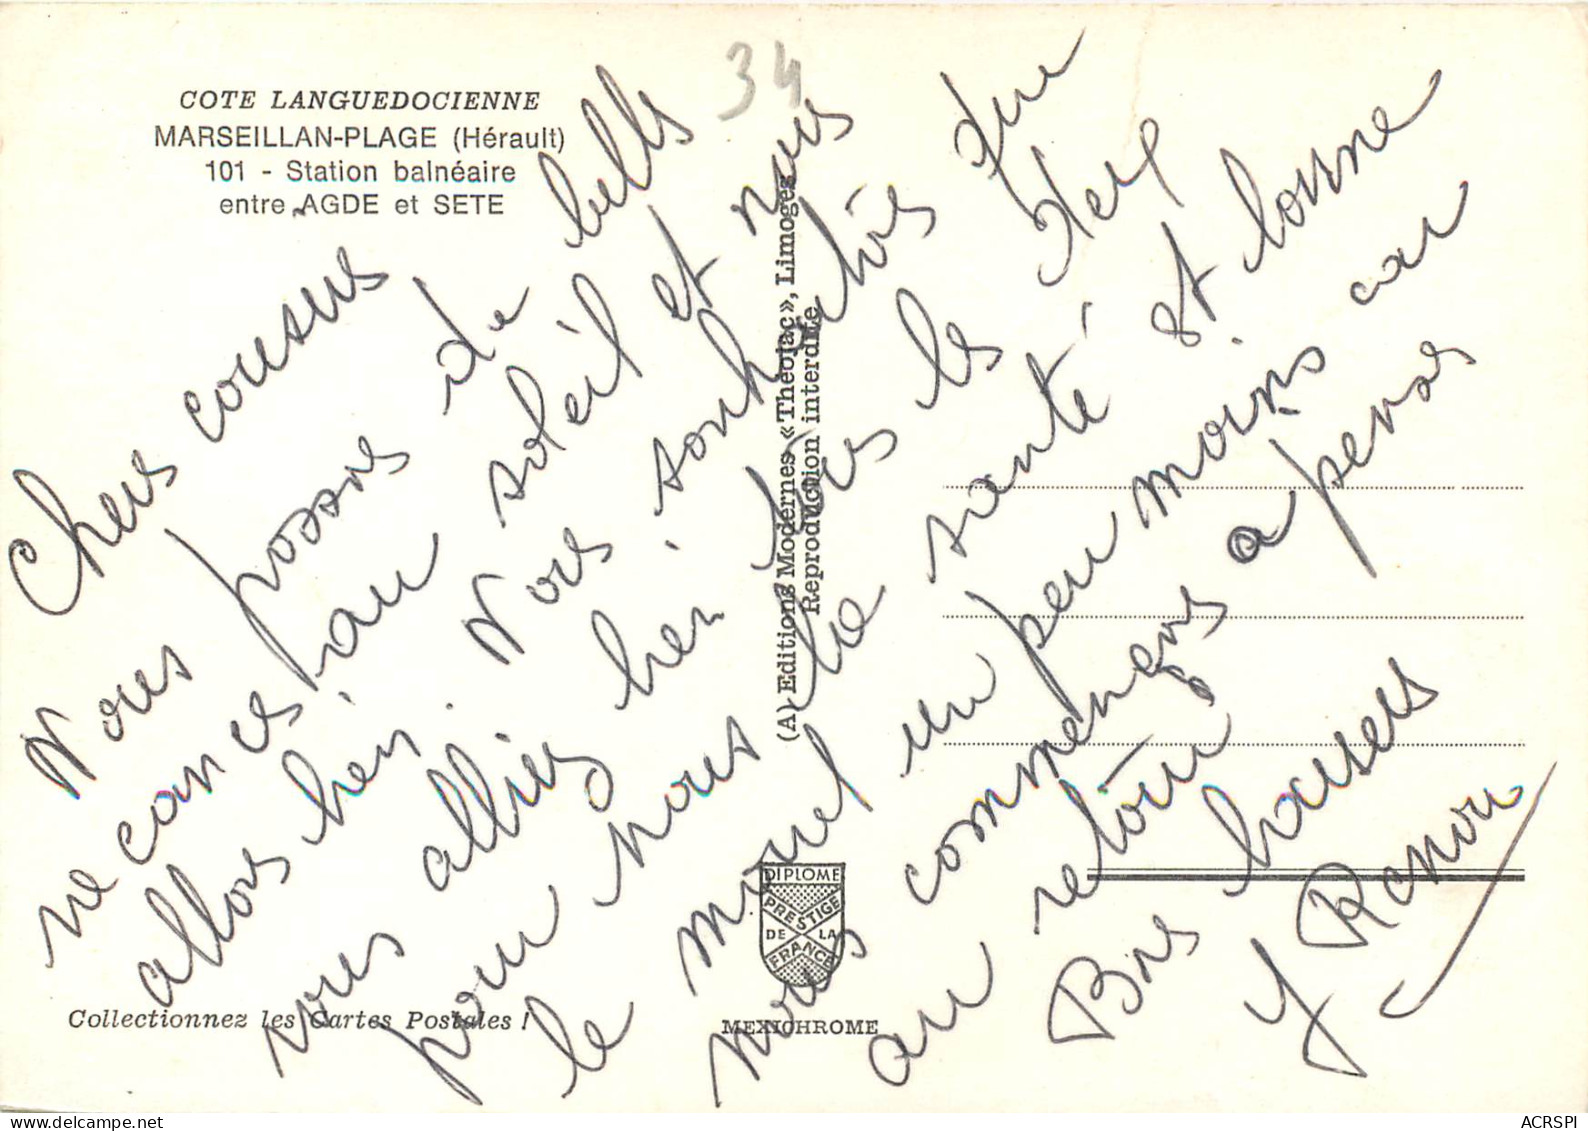 34
COTE LANGUEDOCIENNE
MARSEILLAN-PLAGE (Hérault)
101 - Station balnéaire
entre AGDE et SETE
Chers cousins
Nous passons de belles
vacances au soleil et nous
allons bien. Nous souhaitons que
vous alliez bien tous les deux
pour nous la santé est bonne
le moral un peu moins car
nous commençons à penser
au retour
Bons baisers
Y Renou
(A) Editions Modernes «Théojac», Limoges
Reproduction interdite
DIPLOME
PRESTIGE
DE LA
FRANCE
MEXICHROME
Collectionnez les Cartes Postales !
delcampe.net
ACRSPI